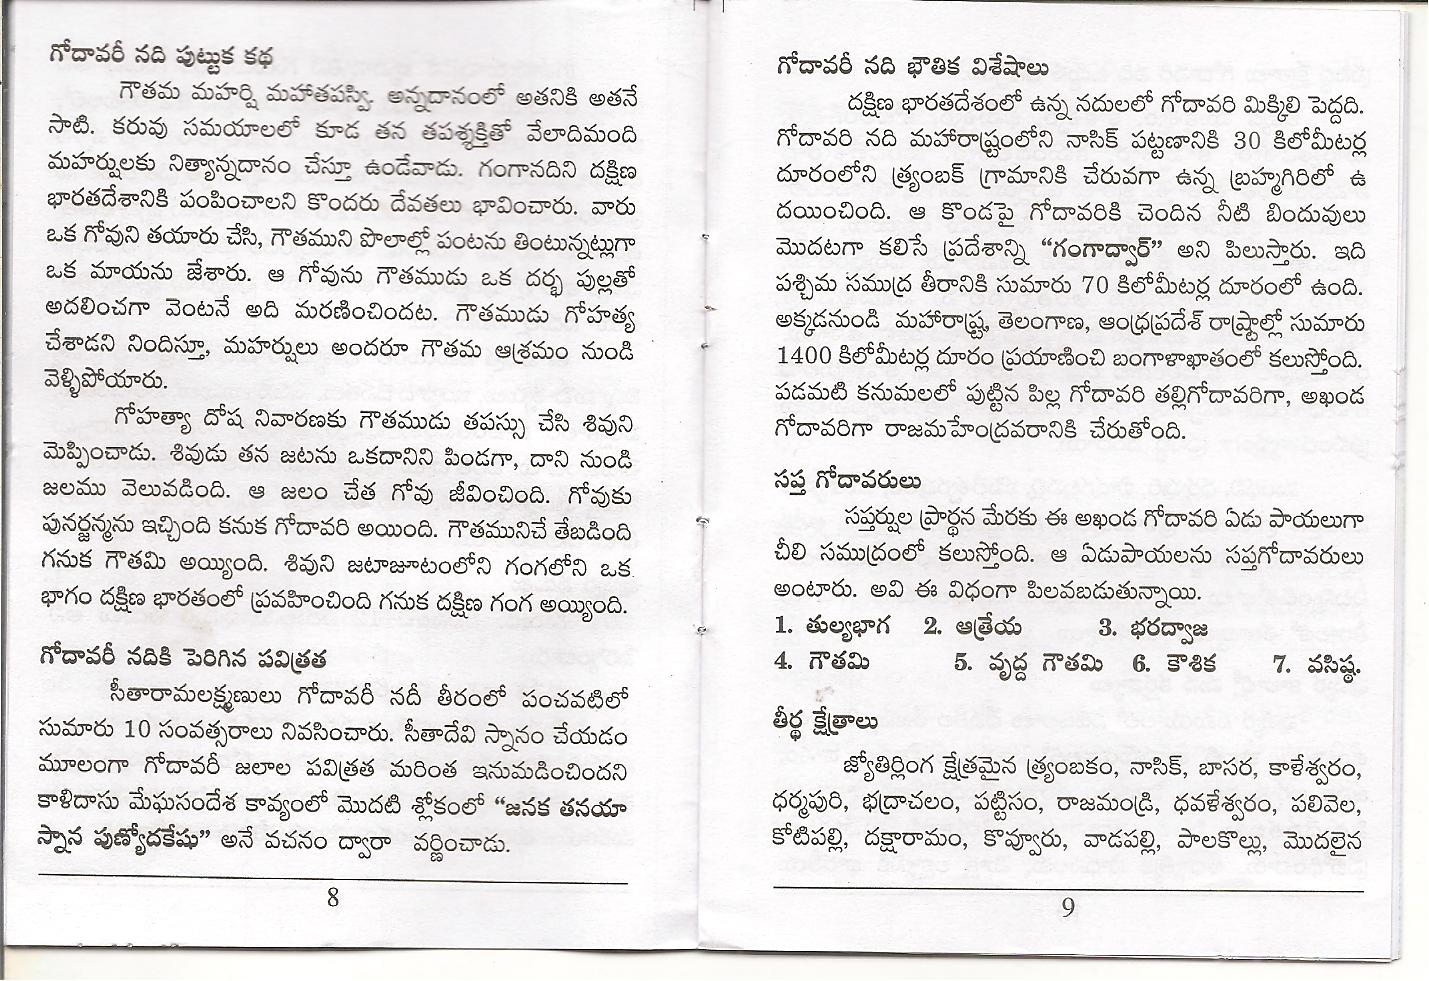 గోదావరీ నది పుట్టుక కథ
గౌతమ మహర్షి మహాతపస్వి. అన్నదానంలో అతనికి అతనే
సాటి. కరువు సమయాలలో కూడ తన తపశ్శక్తితో వేలాదిమంది
మహర్షులకు నిత్యాన్నదానం చేస్తూ ఉండేవాడు. గంగానదిని దక్షిణ
భారతదేశానికి పంపించాలని కొందరు దేవతలు భావించారు. వారు
ఒక గోవుని తయారు చేసి, గౌతముని పొలాల్లో పంటను తింటున్నట్లుగా
ఒక మాయను జేశారు. ఆ గోవును గౌతముడు ఒక దర్భ పుల్లతో
అదలించగా వెంటనే అది మరణించిందట. గౌతముడు గోహత్య
చేశాడని నిందిస్తూ, మహర్షులు అందరూ గౌతమ ఆశ్రమం నుండి
వెళ్ళిపోయారు.
గోహత్యా దోష నివారణకు గౌతముడు తపస్సు చేసి శివుని
మెప్పించాడు. శివుడు తన జటను ఒకదానిని పిండగా, దాని నుండి
జలము వెలువడింది. ఆ జలం చేత గోవు జీవించింది. గోవుకు
పునర్జన్మను ఇచ్చింది కనుక గోదావరి అయింది. గౌతమునిచే తేబడింది
గనుక గౌతమి అయ్యింది. శివుని జటాజూటంలోని గంగలోని ఒక
భాగం దక్షిణ భారతంలో ప్రవహించింది గనుక దక్షిణ గంగ అయ్యింది.
గోదావరీ నదికి పెరిగిన పవిత్రత
సీతారామలక్ష్మణులు గోదావరీ నదీ తీరంలో పంచవటిలో
సుమారు 10 సంవత్సరాలు నివసించారు. సీతాదేవి స్నానం చేయడం
మూలంగా గోదావరీ జలాల పవిత్రత మరింత ఇనుమడించిందని
కాళిదాసు మేఘసందేశ కావ్యంలో మొదటి శ్లోకంలో “జనక తనయా
స్నాన పుణ్యోదకేషు” అనే వచనం ద్వారా వర్ణించాడు.
8
గోదావరీ నది భౌతిక విశేషాలు
దక్షిణ భారతదేశంలో ఉన్న నదులలో గోదావరి మిక్కిలి పెద్దది.
గోదావరి నది మహారాష్ట్రంలోని నాసిక్ పట్టణానికి 30 కిలోమీటర్ల
దూరంలోని త్ర్యంబక్ గ్రామానికి చేరువగా ఉన్న బ్రహ్మగిరిలో ఉ
దయించింది. ఆ కొండపై గోదావరికి చెందిన నీటి బిందువులు
మొదటగా కలిసే ప్రదేశాన్ని “గంగాద్వార్” అని పిలుస్తారు. ఇది
పశ్చిమ సముద్ర తీరానికి సుమారు 70 కిలోమీటర్ల దూరంలో ఉంది.
అక్కడనుండి మహారాష్ట్ర, తెలంగాణ, ఆంధ్రప్రదేశ్ రాష్ట్రాల్లో సుమారు
1400 కిలోమీటర్ల దూరం ప్రయాణించి బంగాళాఖాతంలో కలుస్తోంది.
పడమటి కనుమలలో పుట్టిన పిల్ల గోదావరి తల్లిగోదావరిగా, అఖండ
గోదావరిగా రాజమహేంద్రవరానికి చేరుతోంది.
సప్త గోదావరులు
సప్తర్షుల ప్రార్థన మేరకు ఈ అఖండ గోదావరి ఏడు పాయలుగా
చీలి సముద్రంలో కలుస్తోంది. ఆ ఏడుపాయలను సప్తగోదావరులు
అంటారు. అవి ఈ విధంగా పిలవబడుతున్నాయి.
1. తుల్యభాగ 2. ఆత్రేయ 3. భరద్వాజ
4. గౌతమి 5. వృద్ధ గౌతమి 6. కౌశిక 7. వసిష్ఠ.
తీర్థ క్షేత్రాలు
జ్యోతిర్లింగ క్షేత్రమైన త్ర్యంబకం, నాసిక్, బాసర, కాళేశ్వరం,
ధర్మపురి, భద్రాచలం, పట్టిసం, రాజమండ్రి, ధవళేశ్వరం, పలివెల,
కోటిపల్లి, దక్షారామం, కొవ్వూరు, వాడపల్లి, పాలకొల్లు, మొదలైన
9